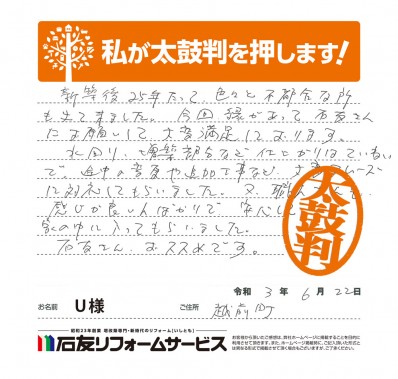 私が太鼓判を押します!
新築後25年たって色々と不都合な所
も出て来ました。今回縁があって石友さん
にお願いして、大変満足しております。
水回り、増築部分など仕上がりはていねい
で、途中の変更や追加工事など、大変スムーズ
に対応してもらいました。又、職人さんも
感じが良い人ばかりで、安心して
家の中に入ってもらいました。
石友さん、おススメです。
太鼓判
令和 3 年 6 月 22 日
お名前 U様 ご住所 越前町
昭和23年創業 増改築専門・新時代のリフォーム(いしとも)
石友リフォームサービス